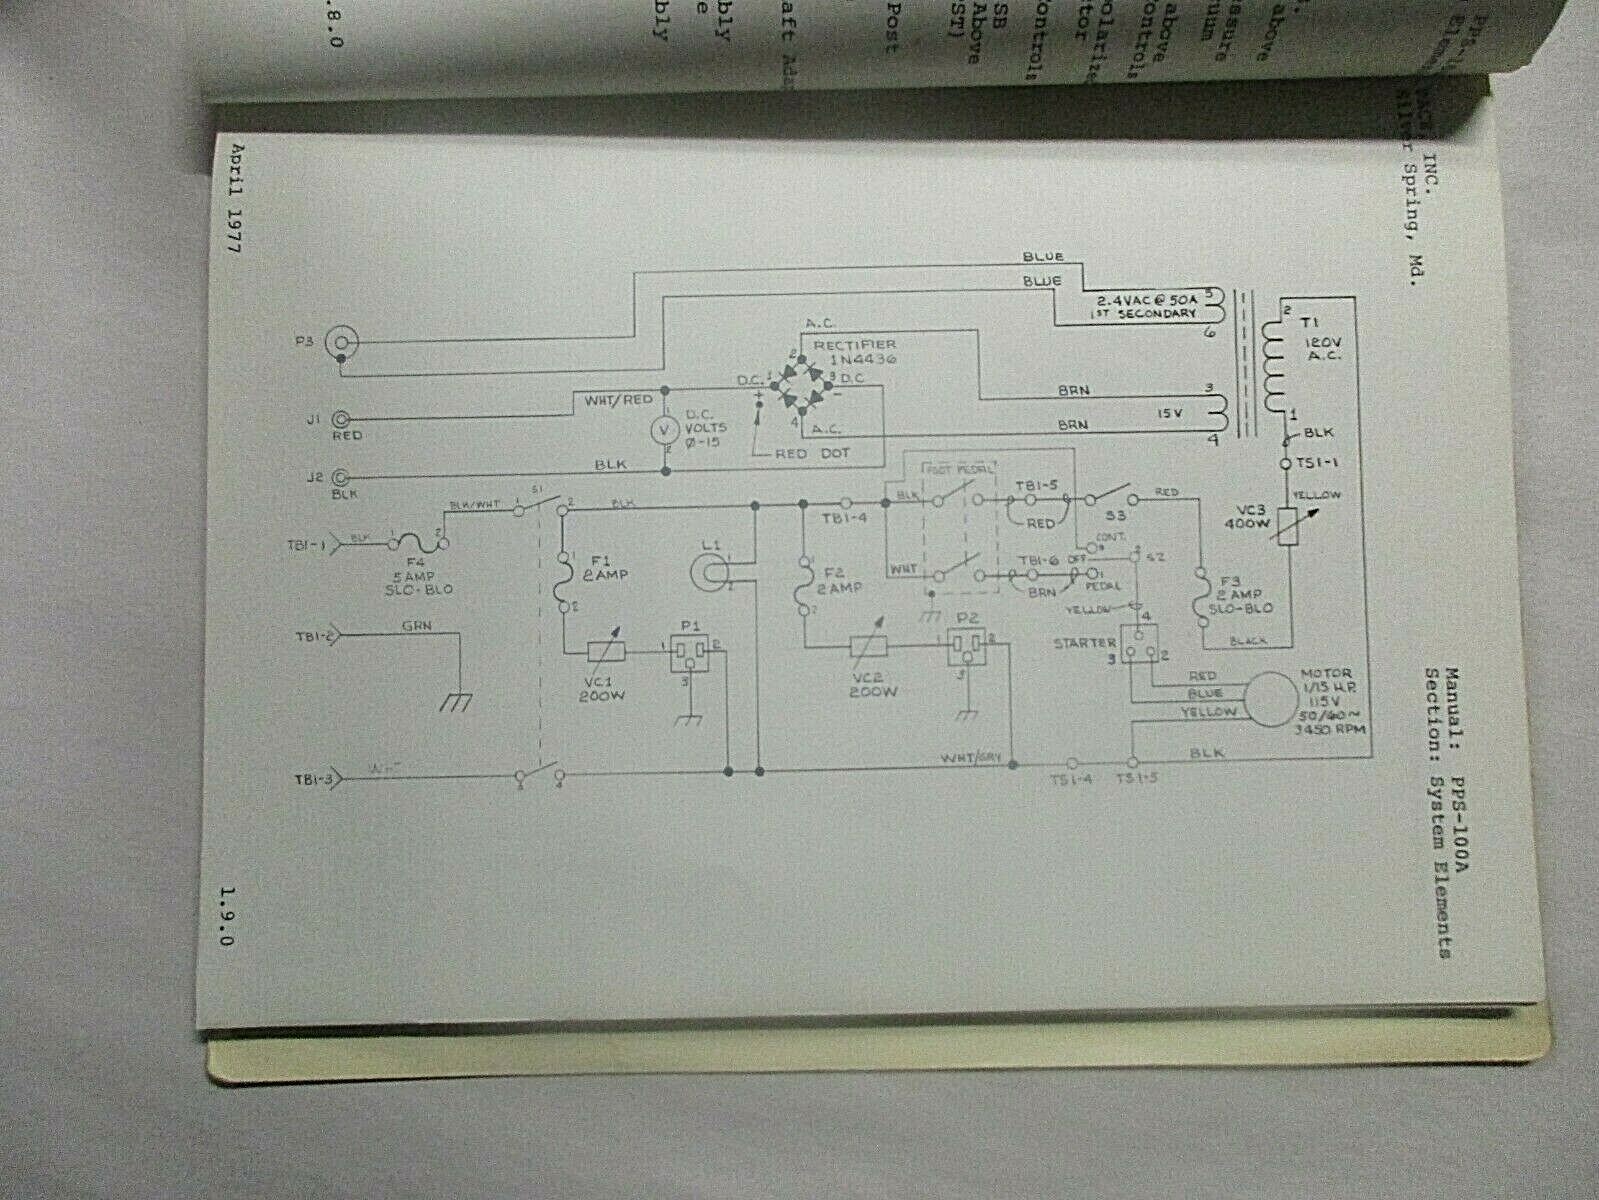 PACE, INC.
Silver Spring, Md.
Manual: PPS-100A
Section: System Elements
April 1977
1.9.0
1.8.0
above
ssure
uum
above
ontrols
olarize
ctor
ontrols
SB
Above
PST)
Post
aft Ada
bly
e
bly
BLUE
BLUE
2.4VAC @ 50A
1ST SECONDARY
5
6
2
T1
120V
A.C.
P3
A.C.
RECTIFIER
1N4436
2
D.C. 1
3 D.C
+
-
4
A.C.
BRN
3
15V
BRN
4
1
BLK
TS1-1
J1
RED
WHT/RED
1
V
2
D.C.
VOLTS
Ø-15
RED DOT
J2
BLK
BLK
FOOT PEDAL
BLK/WHT
1
S1
2
BLK
TB1-4
BLK
TB1-5
RED
S3
RED
YELLOW
VC3
400W
TB1-1
BLK
1
2
F4
5 AMP
SLO-BLO
1
F1
2 AMP
2
L1
1
2
1
F2
2 AMP
2
WHT
TB1-6
BRN
CONT.
OFF
S2
1
PEDAL
F3
2 AMP
SLO-BLO
BLACK
TB1-2
GRN
VC1
200W
1
P1
2
3
VC2
200W
1
P2
2
3
YELLOW
4
STARTER
3
2
RED
BLUE
YELLOW
MOTOR
1/15 H.P.
115V
50/60~
3450 RPM
TB1-3
WHT
4
WHT/GRY
TS1-4
TS1-5
BLK